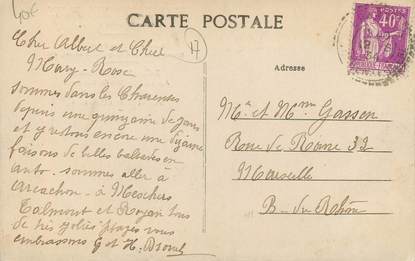 40€
CARTE POSTALE
17
Cher Albert et Chère
Mary-Rose
sommes dans les Charentes
depuis une quinzaine de jours
et y restons encore une dizaine
faisons de belles balades en
auto. sommes allés à
Arcachon - à Meschers
Talmont et Royan tous
de très jolies plages vous
embrassons G et H.
POSTES
40c
Adresse
Mr et Mme Gasson
Rue de Rome 32
Marseille
B. du Rhône